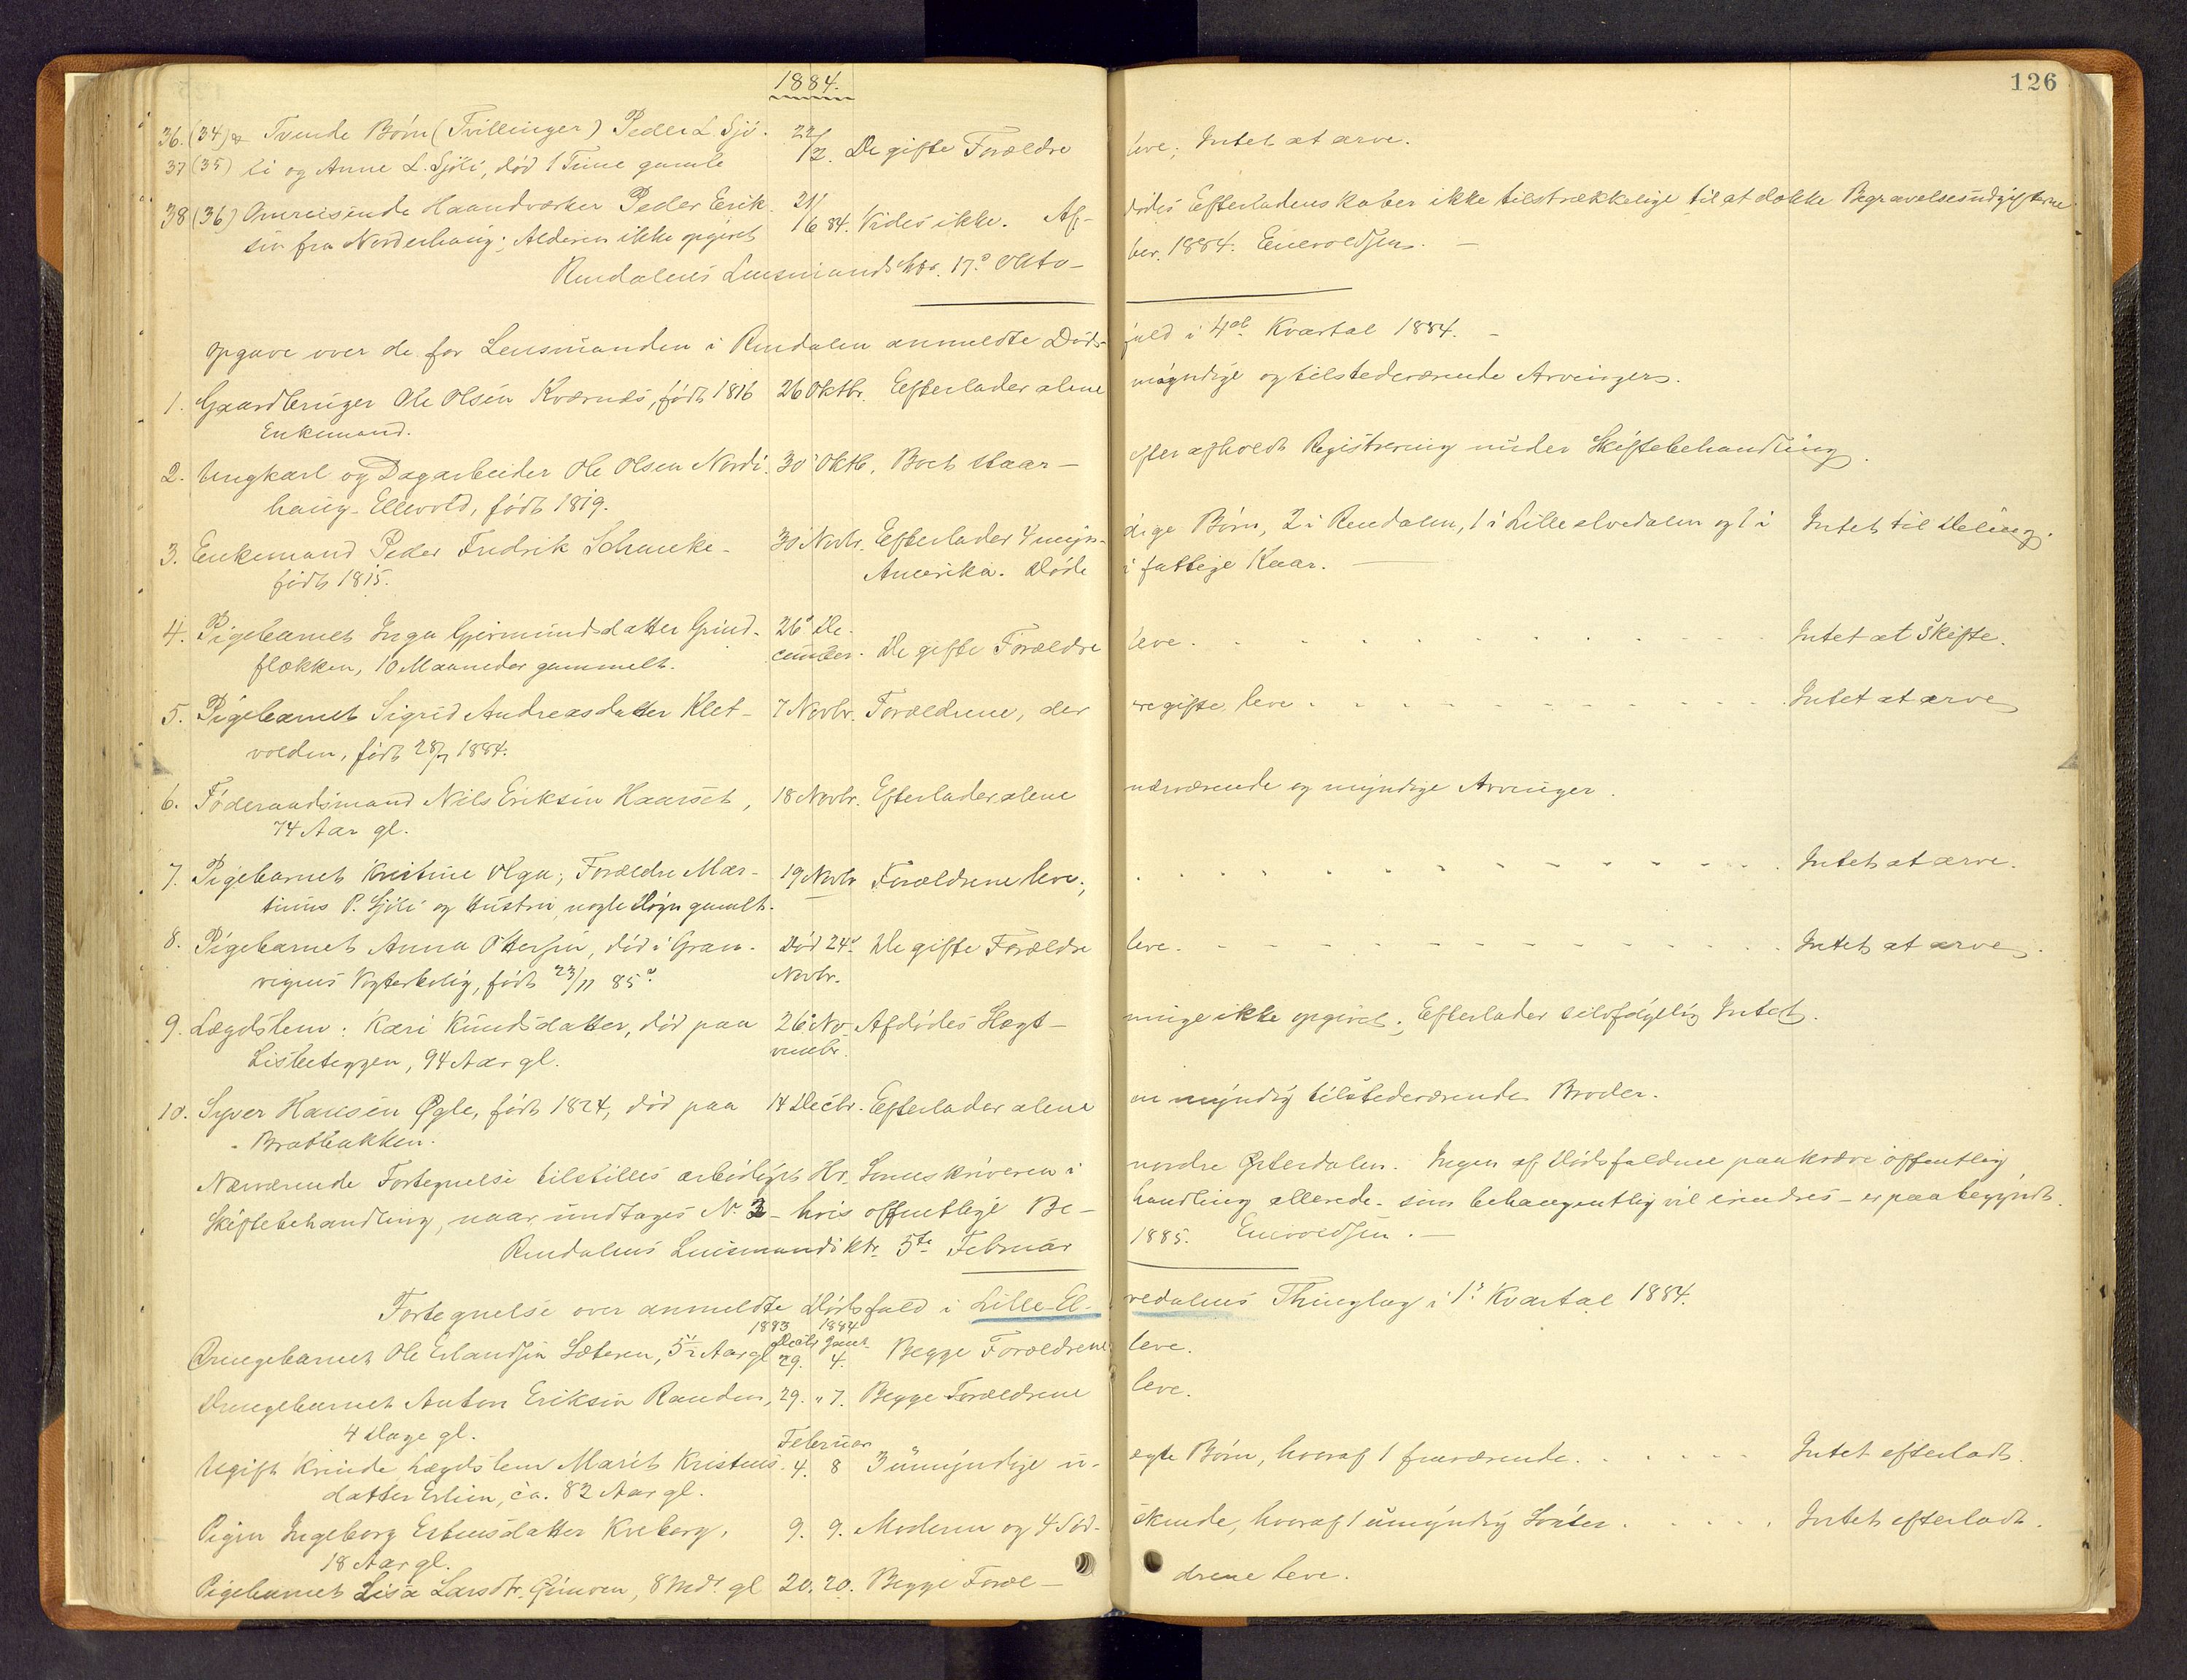 1884.
126
36. (34) & Tvende Børn (Tvillinger) Peder L. Sjø- 22/2. De gifte Forældre leve; Intet at arve.
37 (35) li og Anne L. Sjøli, død 1 Time gamle
38 (36) Omreisende Haandværker Peder Erik- 21/6 84. Vides ikke. Af- dødes Efterladenskaber ikke tilstrækkelige til at dække Begravelsesudgifterne
sen fra Norderhaug; Alderen ikke opgivet
Rendalens Lensmandsktr. 17de Okto- ber. 1884. Enevoldsen. —
Opgave over de for Lensmanden i Rendalen anmeldte Døds- fald i 4de Kvartal 1884. –
1. Gaardbruger Ole Olsen Kværnes, født 1816 26 Oktbr. Efterlader alene myndige og tilstedeværende Arvinger.
Enkemand.
2. Ungkarl og Dagarbeider Ole Olsen Nordi- 30 Oktb. Boet staar — efter afholdt Registrering under Skiftebehandling.
haug-Ellevold, født 1819.
3. Enkemand Peder Fredrik Schancke - 30 Novbr. Efterlader 4 myn- dige Børn, 2 i Rendalen, 1 i Lille elvedalen og 1 i Intet til Deling.
født 1815. Amerika. Døde i fattige Kaar. —
4. Pigebarnet Inga Gjermundsdatter Grind- 26de De-
flækken, 10 Maaneder gammelt. cember. De gifte Forældre leve. Intet at skifte.
5. Pigebarnet Sigrid Andreasdatter Klet- 7 Novbr. Forældrene, der ere gifte, leve. Intet at arve
volden, født 28/7 1884.
6. Føderaadsmand Nils Eriksen Haarset, 18 Novbr. Efterlader alene nærværende og myndige Arvinger.
74 Aar gl.
7. Pigebarnet Kristine Olga; Forældre Mar- 19 Novbr Forældrene leve; Intet at arve.
tinus P. Sjøli og Hustru, nogle Døgn gamlt.
8. Pigebarnet Anna Ottersen, død i Gran- Død 24de De gifte Forældre leve. Intet at arve.
vignes Vogterbolig, født 23/11 85. Novbr.
9. Lægdslem: Kari Knudsdatter, død paa 26 No- Afdødes Slægt- ninge ikke opgivet; Efterlader selvfølgelig Intet.
Lisbeteggen, 94 Aar gl. vembr.
10. Syver Hansen Øgle, født 1824, død paa 14 Decbr. Efterlader alene en myndig tilstedeværende Broder.
Bratbakken.
Nærværende Fortegnelse tilstilles ærbødigst Hr. Sorenskriveren i nordre Østerdalen. Ingen af Dødsfaldene paakræve offentlig
Skiftebehandling, naar undtages No. 2 - hvis offentlige Be- handling allerede - som behagentlig vil erindres - er paabegyndt.
Rendalens Lensmandsktr. 5te Februar 1885. Enevoldsen. —
Fortegnelse over anmeldte Dødsfald i Lille-El- vedalens Thinglag i 1ste Kvartal 1884.
1883 1884
Decbr Janr.
Drengebarnet Ole Erlandsen Sæteren, 5 1/2 Aar gl 29. 4. Begge Forældrene leve.
Drengebarnet Anton Eriksen Randen, 29. „ 7. Begge Forældrene leve.
4 Dage gl.
Februar
Ugift Kvinde Lægdslem Marit Kristens- 4. 8 3 umyndige u- ægte Børn, hvoraf 1 fraværende. Intet efterladt.
datter Erlien, ca. 82 Aar gl.
Pigen Ingeborg Estensdatter Kveberg, 9. 9. Moderen og 4 Sød- skende, hvoraf 1 umyndig Søster. Intet efterladt.
18 Aar gl.
Pigebarnet Lisa Larsdtr. Grimoen, 8 Mdr. gl 20. 20. Begge Foræl- drene leve.